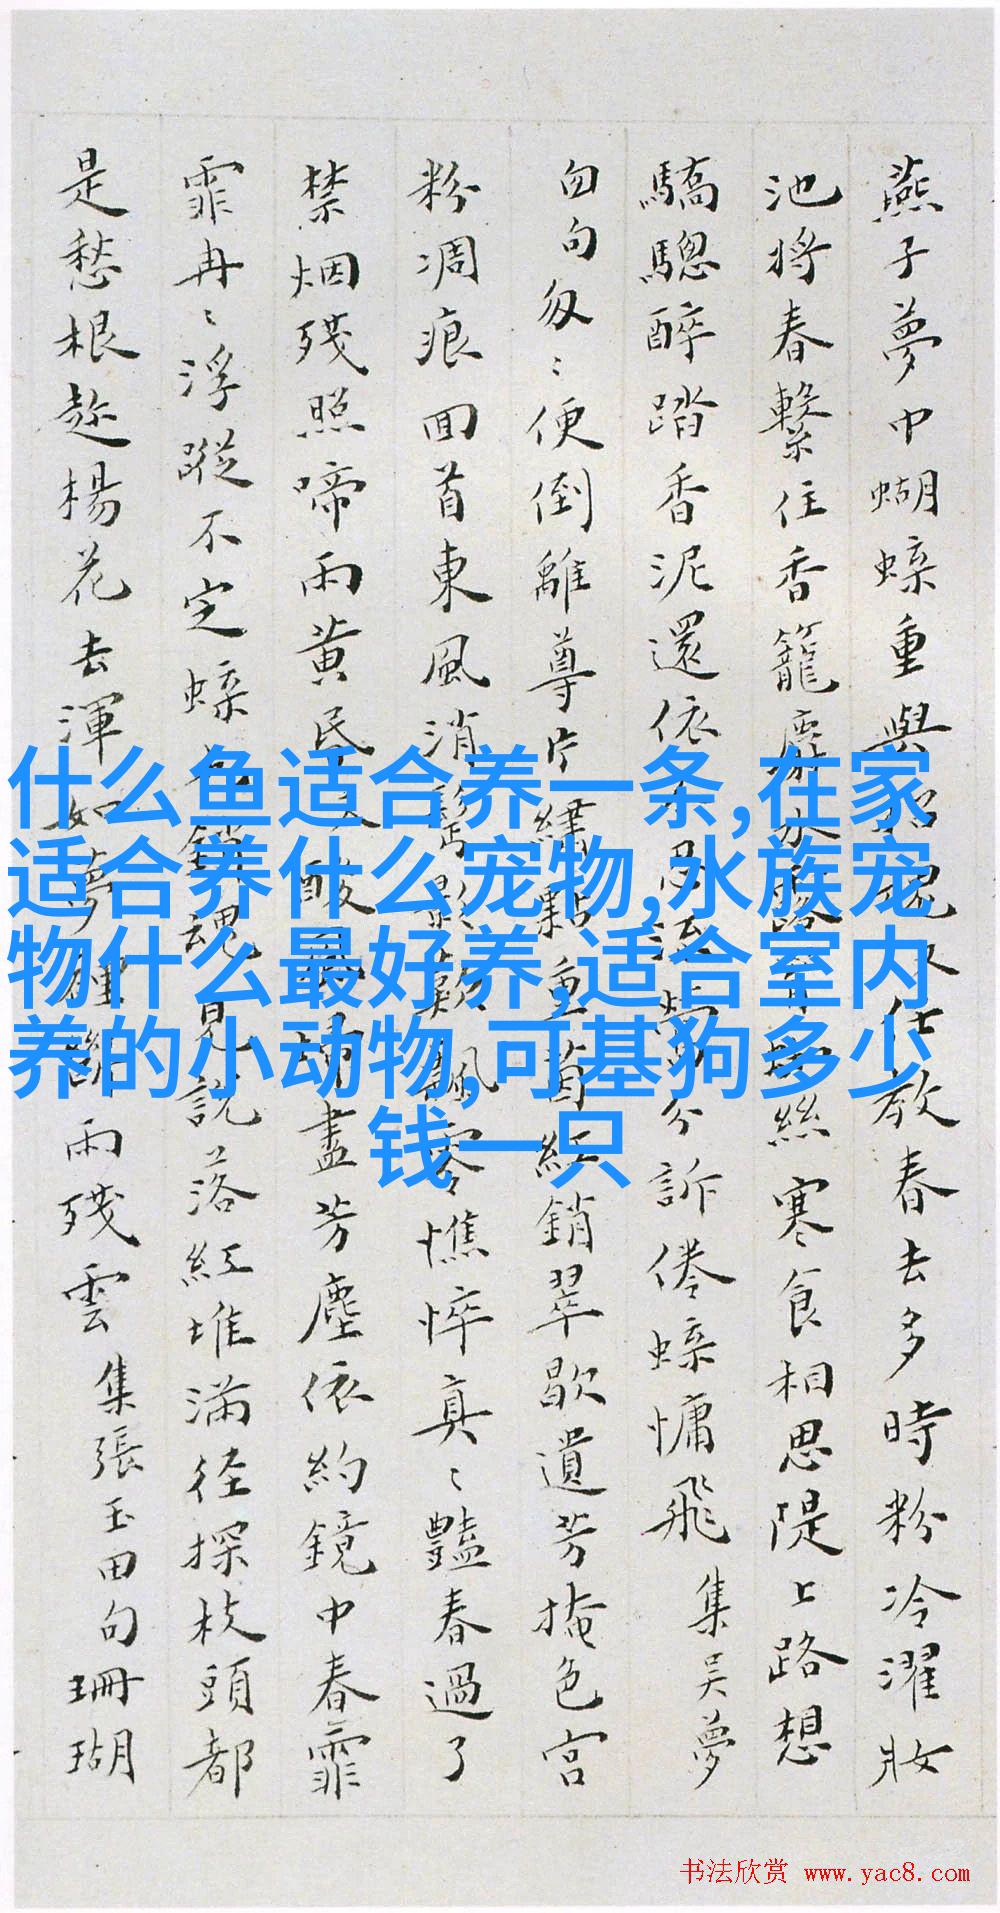 燕子夢中蝴蝶重與招魂教春去多時粉冷濯妝
池將春繫住香籠麝水絲寒食相思隄上路想
驕驄醉踏香泥還依分訴倦蝶慵飛 集吳夢
句匆〻便倒離尊片繡點重茵紅銷翠歇遺芳掩色宮
粉凋痕回首東風消鬢影飄零憔悴真〻豔春過了
禁烟殘照啼雨黃昏酸風盡芳塵依約鏡中春霏
霏冉〻浮蹤不定蝶銷魂見說落紅堆滿徑探枝頭都
是愁根趁楊花去渾如夢斷雨殘雲 集張玉田句 珊瑚
什么鱼适合养一条,在家
适合养什么宠物,水族宠
物什么最好养,适合室内
养的小动物,可基狗多少
钱一只
书法欣赏 www.yac8.com